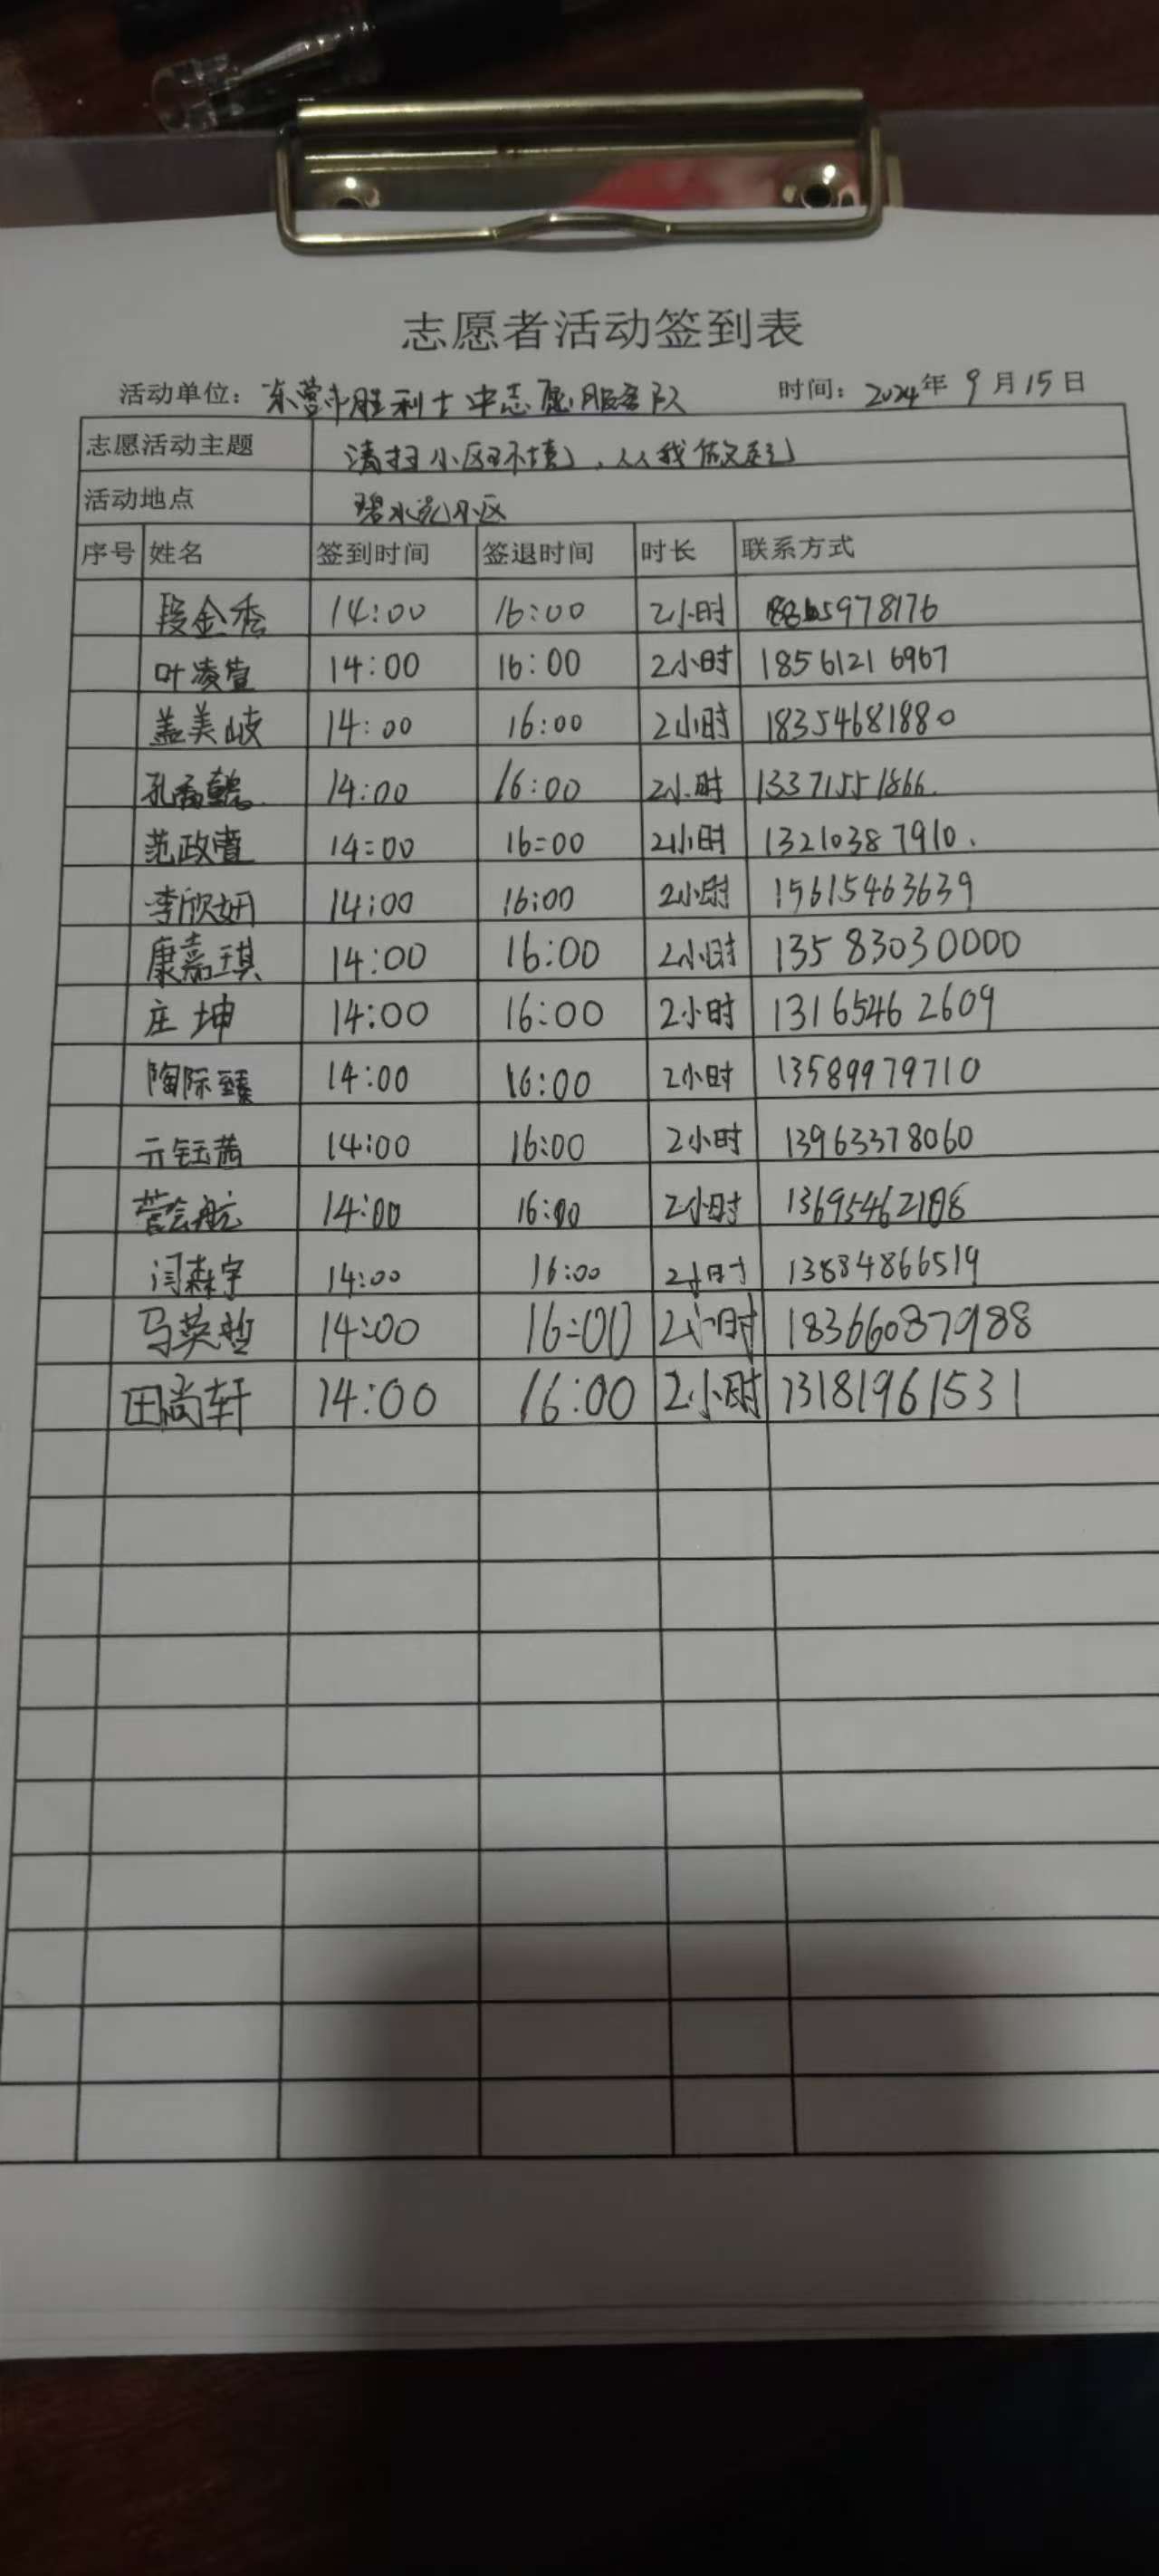 志愿者活动签到表
活动单位：东营市胜利十中志愿服务队 时间：2024年9月15日
志愿活动主题 清扫小区环境，人人我做文
活动地点 碧水 小区
序号 姓名 签到时间 签退时间 时长 联系方式
段金秀 14:00 16:00 2小时 5978176
叶凌萱 14:00 16:00 2小时 18561216967
盖美岐 14:00 16:00 2小时 18354681880
孔 14:00 16:00 2小时 13371551866.
范政 14:00 16:00 2小时 13210387910.
李欣妍 14:00 16:00 2小时 15615463639
康嘉琪 14:00 16:00 2小时 13583030000
庄坤 14:00 16:00 2小时 13165462609
陶际臻 14:00 16:00 2小时 13589979710
亓钰茜 14:00 16:00 2小时 13963378060
14:00 16:00 2小时
闫森宇 14:00 16:00 2小时 13884866519
马英哲 14:00 16:00 2小时 18366087988
田尚轩 14:00 16:00 2小时 13181961531